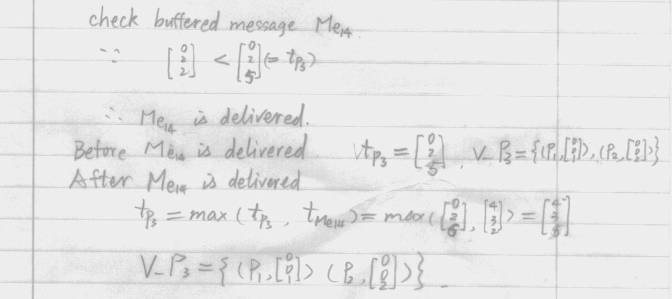 check buffered message Me14.
∵ [0 2 2] < [0 2 5] (= tP3)
∴ Me14 is delivered.
Before Me14 is delivered VtP3 = [0 2 5], V_P3 = {(P1,[0 0 1]), (P2,[0 0 2])}
After Me14 is delivered
tP3 = max(tP3, tMe14) = max([0 2 5], [4 3 2]) = [4 3 5]
V_P3 = {(P1,[0 0 1]) (P2,[0 0 2])}.